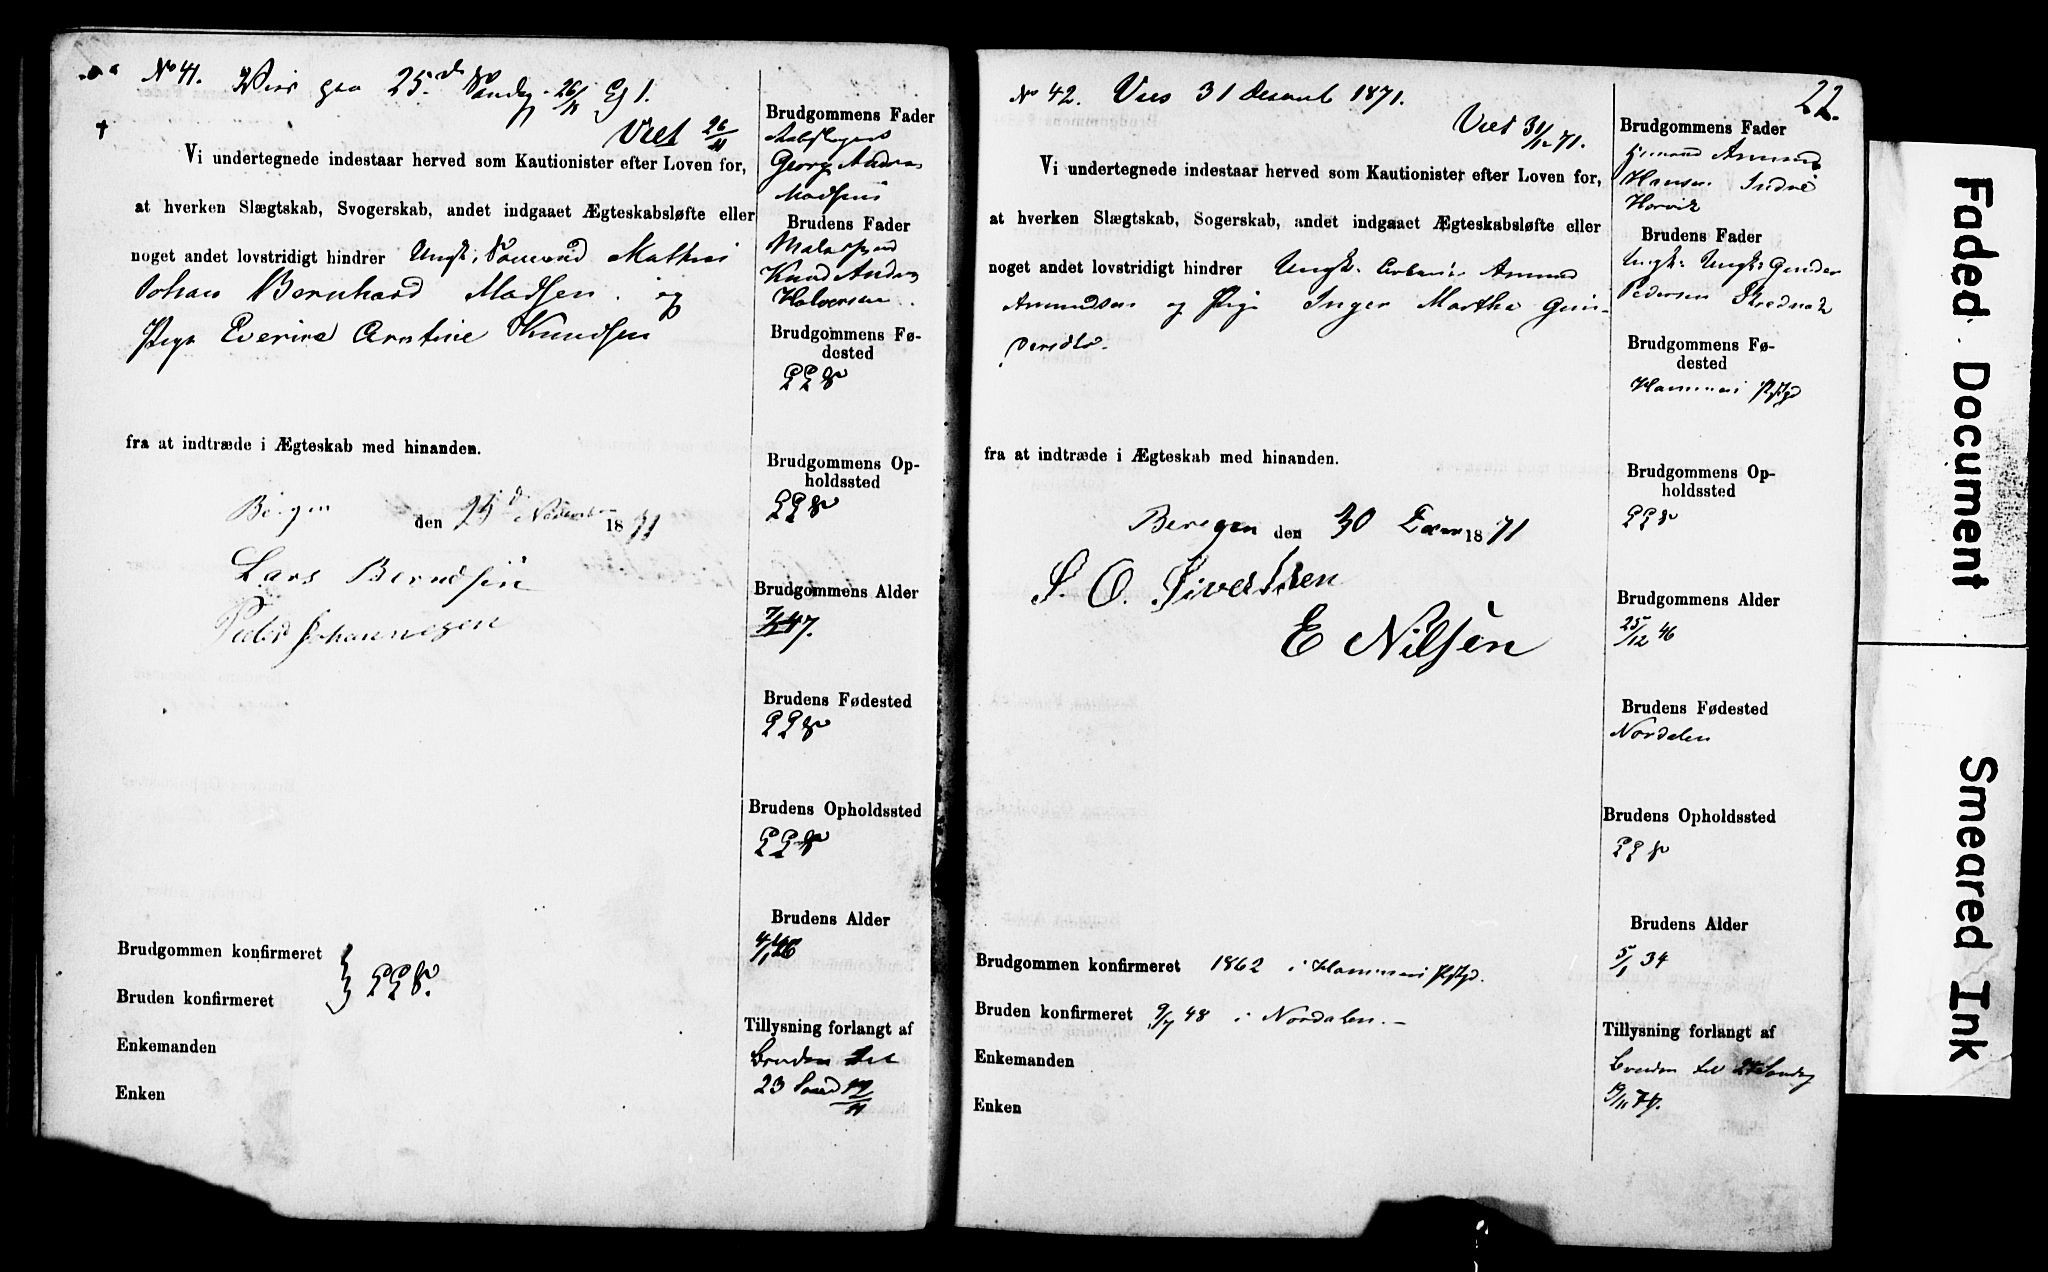 No 41. Vies paa 25.de Søndag 26/11 Kl 1.
Viet 26/11
Vi undertegnede indestaar herved som Kautionister efter Loven for,
at hverken Slægtskab, Svogerskab, andet indgaaet Ægteskabsløfte eller
noget andet lovstridigt hindrer Ungk. Sømand Mathias
Johan Bernhard Madsen og
Pige Everine Arntine Knudsen
fra at indtræde i Ægteskab med hinanden.
Bergen den 25d November 1871
Lars Berndsen
Peder Johannesen
Brudgommen konfirmeret
Bruden konfirmeret
Enkemanden
Enken
Brudgommens Fader
Georg Andreas
Madsen
Brudens Fader
Knud Andreas
Halvorsen
Brudgommens Fø-
dested
Brudgommens Op-
holdssted
Brudgommens Alder
Brudens Fødested
Brudens Opholdssted
Brudens Alder
Tillysning forlangt af
Bruden til
23 Sønd 12/11
22.
No 42. Vies 31 decemb 1871.
Viet 31/12 71.
Vi undertegnede indestaar herved som Kautionister efter Loven for,
at hverken Slægtskab, Sogerskab, andet indgaaet Ægteskabsløfte eller
noget andet lovstridigt hindrer Ungk. Arbeider Amund
Amundsen og Pige Inger Martha Gun-
dersdtr.
fra at indtræde i Ægteskab med hinanden.
Bergen den 30 Decbr 1871
S. O. Sivertsen
E Nilsen
Brudgommen konfirmeret 1862 i Hammers Pstgd.
Bruden konfirmeret 9/7 48 i Nordalen.
Enkemanden
Enken
Brudgommens Fader
Amund
Hansen Indre
Horvik
Brudens Fader
Ungk. Gunder
Pedersen
Brudgommens Fø-
dested
Hammers Pstgd
Brudgommens Op-
holdssted
Brudgommens Alder
25/12 46
Brudens Fødested
Nordalen
Brudens Opholdssted
Brudens Alder
5/1 34
Tillysning forlangt af
Bruden til 24 Søndag
19/11 71.
Faded Document
Smeared Ink